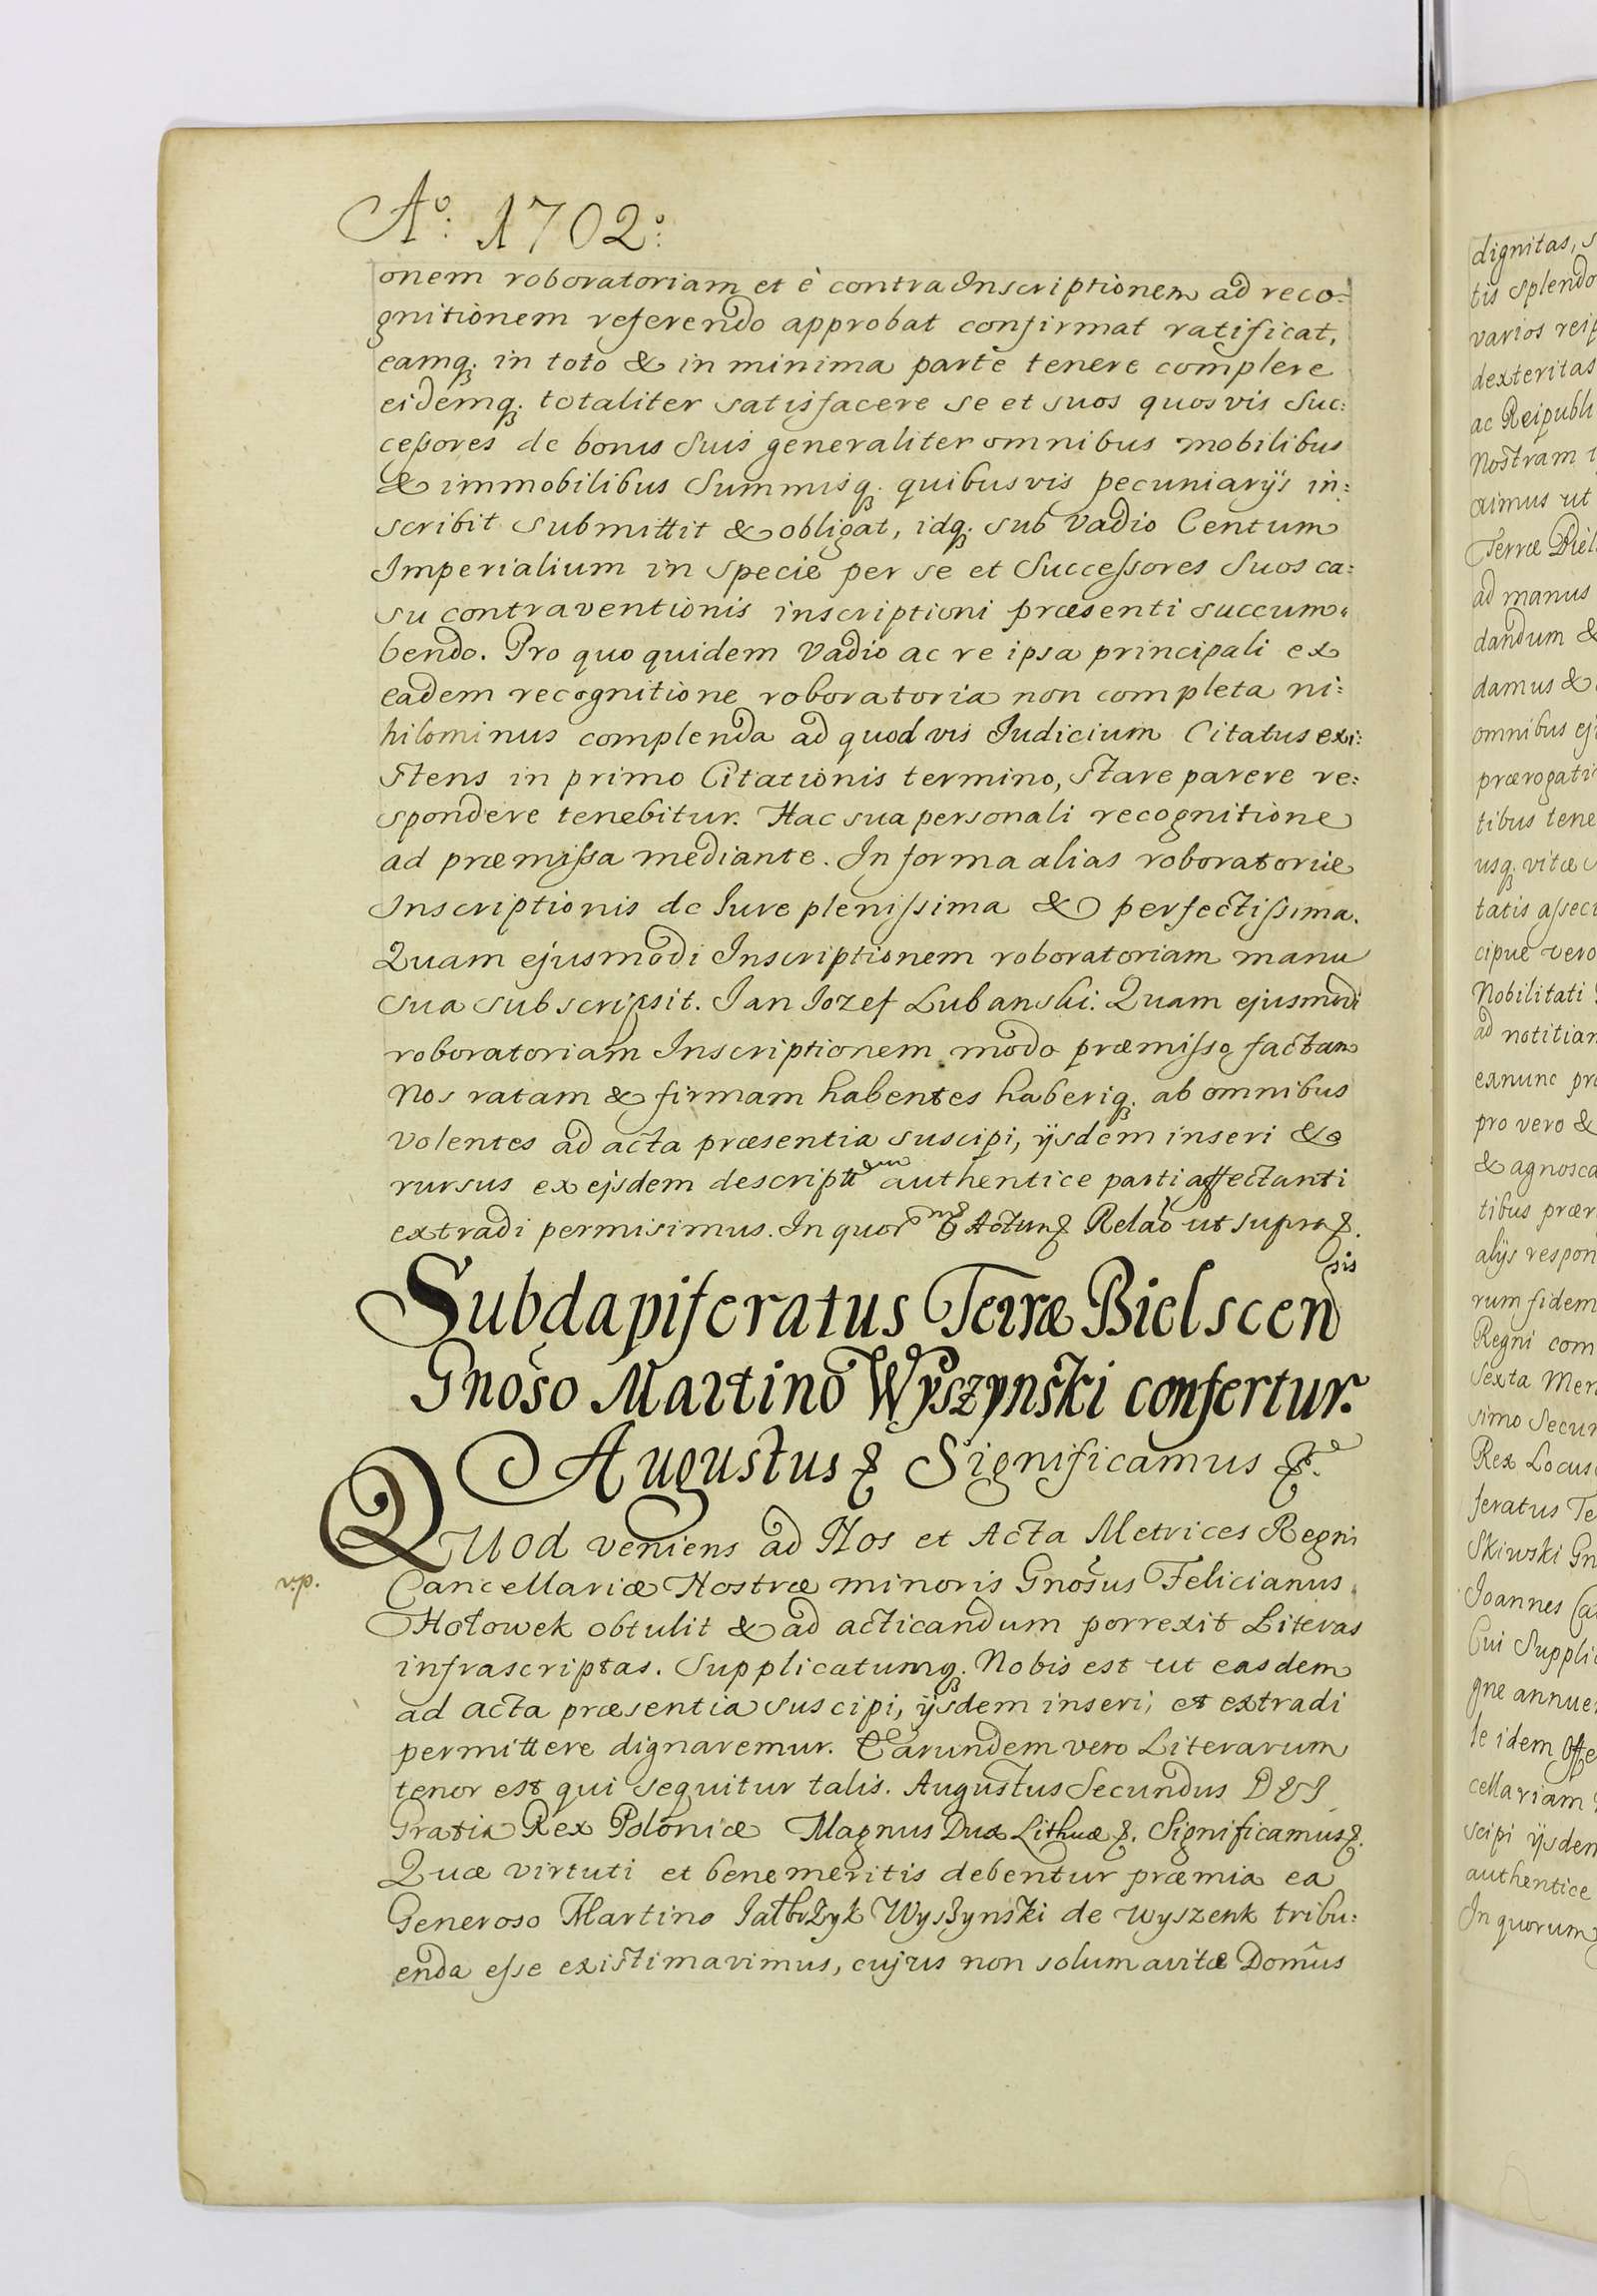 Aº: 1702º:
onem roboratoriam et è contra Inscriptionem ad reco:
gnitionem referendo approbat confirmat ratificat,
eamq; in toto & in minima parte tenere complere
eidemq; totaliter satisfacere se et suos quosvis Suc:
cessores de bonis Suis generaliter omnibus mobilibus
& immobilibus Summisq; quibusvis pecuniarijs in:
scribit submittit & obligat, idq; sub Vadio Centum
Imperialium in specie per se et Successores Suos ca:
su contraventionis inscriptioni præsenti succum:
bendo. Pro quo quidem Vadio ac re ipsa principali ex
eadem recognitione roboratoria non completa ni:
hilominus complenda ad quodvis Iudicium Citatus exi:
stens in primo Citationis termino, stare parere re:
spondere tenebitur. Hac sua personali recognitione
ad præmissa mediante. In forma alias roboratoriæ
Inscriptionis de Iure plenissima & perfectissima.
Quam ejusmodi Inscriptionem roboratoriam manu
sua subscripsit. Jan Jozef Lubanski. Quam ejusmodi
roboratoriam Inscriptionem modo præmisso factam
Nos ratam & firmam habentes haberiq; ab omnibus
volentes ad acta præsentia suscipi, ijsdem inseri &
rursus ex ejsdem descript authentice parti affectanti
extradi permisimus. In quor Actum Relao ut supra
Subdapiferatus Terræ Bielscensis
Gnoso Martino Wyszynski confertur.
Augustus Significamus &.
Quod veniens ad Nos et Acta Metrices Regni
v.p.
Cancellariæ Nostræ minoris Gnosus Felicianus
Hołowek obtulit & ad acticandum porrexit Literas
infrascriptas. Supplicatumq; Nobis est ut easdem
ad acta præsentia suscipi, ijsdem inseri, et extradi
permittere dignaremur. Earundem vero Literarum
tenor est qui sequitur talis. Augustus Secundus DEI
Gratia Rex Poloniæ Magnus Dux Lithuæ. Significamus
Quæ virtuti et benemeritis debentur præmia ea
Generoso Martino Jałbrzyk Wyszynski de Wyszenk tribu:
enda esse existimavimus, cujus non solum avitæ Domûs
dignitas,
tis splendo
varios reip
dexteritas
ac Reipubli
Nostram
ximus ut
Terræ Biel
ad manus
dandum &
damus &
omnibus ej
prærogati
tibus tene
usq; vitæ
tatis asseci
cipue vero
Nobilitati
ad notitiam
exnunc præ
pro vero &
& agnosca
tibus prær
alijs respon
rum fidem
Regni com
Sexta Men
simo Secun
Rex Locus
feratus Te
Skiwski Gn
Joannes Ca
Cui Suppli
gne annue
le idem Offe
cellariam
scipi ijsdem
authentice
In quorum